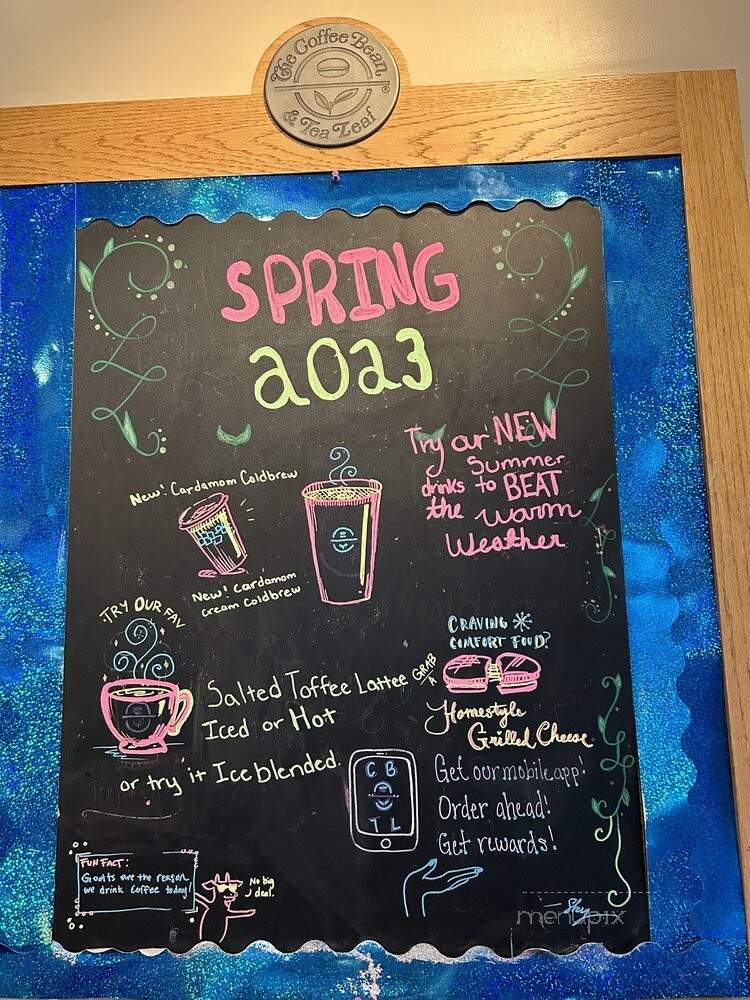 The Coffee Bean
®
& Tea Leaf
SPRING
2023
Try our NEW
Summer
drinks to BEAT
the warm
Weather
New! Cardamom Coldbrew
New! Cardamom
cream Coldbrew
TRY OUR FAV
Salted Toffee Lattee
Iced or Hot
or try it Ice blended.
CRAVING
COMFORT FOOD?
GRAB
A
Homestyle
Grilled Cheese
CB
TL
Get our mobile app!
Order ahead!
Get rewards!
FUN FACT:
Goats are the reason
we drink Coffee today!
No big
deal.
menupix